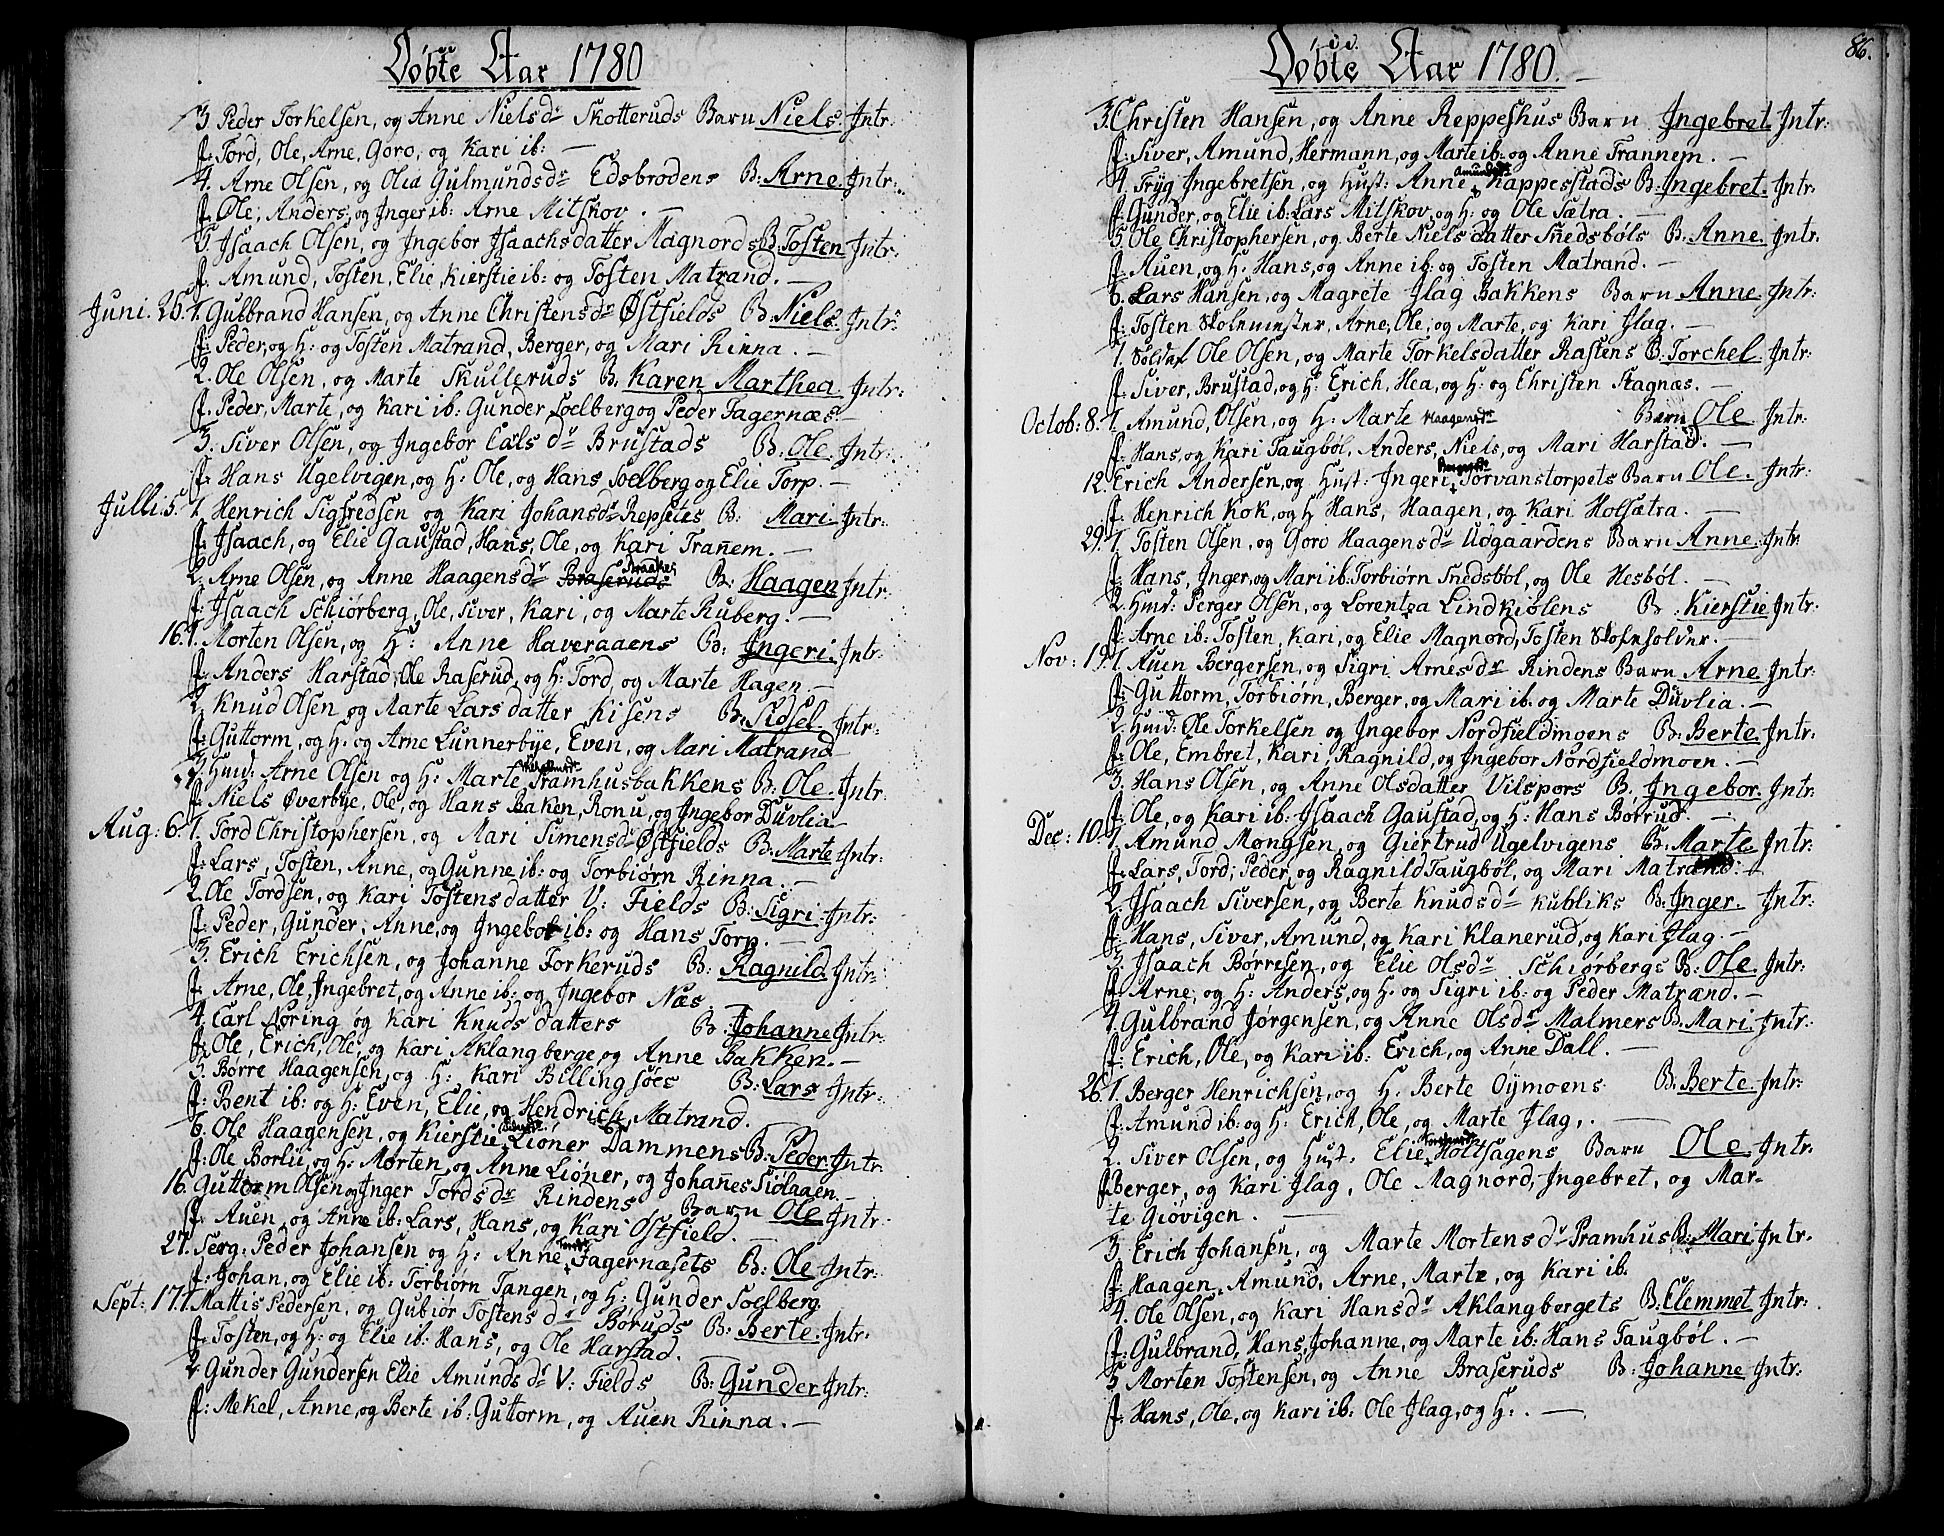 Döbte Aar 1780
3. Peder Torkelsen, og Anne Nielsdr Skotteruds Barn Niels. Intr:
f: Tord, Ole, Arne, Goro, og Kari ib: —
4. Arne Olsen, og Olea Gulmundsdr Edsbrodens B: Arne. Intr:
f: Ole, Anders, og Inger ib: Arne Mitskov. —
5. Isaach Olsen, og Ingebor Isaachsdatter Magnords B. Tosten Intr:
f: Amund, Tosten, Elie, Kierstie ib: og Tosten Matrand. —
Juni. 25. 1. Gulbrand Hansen, og Anne Christensdr Østfields B. Niels. Intr:
f: Peder, og H: og Tosten Matrand, Berger, og Mari Rinna. —
2. Ole Olsen, og Marte Skulleruds B. Karen Marthea. Intr:
f: Peder, Marte, og Kari ib: Gunder Soelberg og Peder Fagernæs. —
3. Siver Olsen, og Ingebor Calsdr Brustads B. Ole. Intr:
f: Hans Ugelvigen, og H: Ole, og Hans Soelberg og Elie Torp. —
Julli. 5. 1. Henrich Sigfredsen og Kari Johansdr Repsetes B: Mari. Intr:
f: Isaach, og Elie Gaustad, Hans, Ole, og Kari Tranem. —
2. Arne Olsen, og Anne Haagensdr Braseruds Braaker B: Haagen Intr:
f: Isaach Schiørberg, Ole, Siver, Kari, og Marte Ruberg. —
16. 1. Morten Olsen, og H: Anne Haveraaens B: Ingeri. Intr:
f: Anders Harstad, Ole Raserud, og H: Tord, og Marte Hagen —
2. Knud Olsen og Marte Larsdatter Kisens B: Sidsel. Intr:
f: Guttorm, og H: og Arne Lunnerbye, Even, og Mari Matrand
3. Hmd: Arne Olsen og H: Marte Pramhusbakkens B: Ole. Intr:
f: Niels Øverbye, Ole, og Hans Baken, Ronu, og Ingebor Duvlia —
Aug: 6. 1. Tord Christophersen, og Mari Simensdr Østfields B: Marte Intr:
f: Lars, Tosten, Anne, og Gunne ib: og Torbiørn Rinna. —
2. Ole Tordsen, og Kari Tostensdatter V: Fields B: Sigri. Intr:
f: Peder, Gunder, Anne, og Ingebor ib: og Hans Torp. —
3. Erich Erichsen, og Johanne Forkeruds B: Ragnild Intr:
f: Arne, Ole, Ingebret, og Anne ib: og Ingebor Næs. —
4. Carl Nøring og Kari Knudsdatters B: Johanne Intr:
f: Ole, Erich, Ole, og Kari Aklangberge og Anne Bakken. —
5. Børre Haagensen, og H: Kari Billingsöes B: Lars Intr:
f: Bent ib: og H: Even, Elie, og Hendrich Matrand.
6. Ole Haagensen, og Kierstie Liöner Dammens B: Peder. Intr:
f: Ole Borlii, og H: Morten, og Anne Liöner, og Johanes Siölaaen. —
16. Guttorm Olsen og Inger Tordsdr Rindens Barn Ole Intr:
f: Auen, og Anne ib: Lars, Hans, og Kari Østfield. —
27. Serg: Peder Johansen og H: Anne Tordsdr Fagernæsets B: Ole Intr:
f: Johan, og Elie ib: Torbiørn Tangen, og H: Gunder Soelberg.
Sept: 17. 1. Mattis Pedersen, og Gubiör Tostensdr Boruds B: Berte. Intr:
f: Tosten, og H: og Elie ib: Hans, og Ole Harstad.
2. Gunder Gundersen Elie Amundsdr V: Fields B: Gunder Intr:
f: Mekel, Anne, og Berte ib: Guttorm, og Auen Rinna. —
Döbte Aar 1780. 86.
3. Christen Hansen, og Anne Reppeshus Barn Ingebret. Intr:
f: Siver, Amund, Hermann, og Marte ib: og Anne Trannem. —
4. Tryg Ingebretsen, og Hust: Anne Amundsdr Kappesstads B: Ingebret. Intr:
f: Gunder, og Elie ib: Lars Mitskov, og H: og Ole Sætra. —
5. Ole Christophersen, og Berte Nielsdatter Snedsböls B: Anne. Intr:
f: Auen, og H: Hans, og Anne ib: og Tosten Matrand. —
6. Lars Hansen, og Magrete Ilag Bakkens Barn Anne. Intr:
f: Tosten Skolemester, Arne, Ole, og Marte, og Kari Ilag. —
7. Soldat Ole Olsen, og Marte Torkelsdatter Rastens B: Torchel. Intr:
f: Siver, Brustad, og H: Erich, Hea, og H: og Christen Skagnæs. —
Octob: 8. 1. Amund Olsen, og H: Marte Haagensdr Barn Ole Intr:
f: Hans, og Kari Taugböl, Anders, Niels, og Mari Harstad. —
12. Erich Andersen, og Hust: Ingeri Bergersdr Torvanstorpets Barn Ole. Intr:
f: Henrich Kok, og H Hans, Haagen, og Kari Holsætra. —
29. 1. Tosten Olsen, og Goro Haagensdr Udgaardens Barn Anne. Intr:
f: Hans, Inger, og Mari ib: Torbiørn Snedsböl, og Ole Hesböl. —
2. Hmd: Perger Olsen, og Lorentza Lindkiölens B: Kierstie Intr:
f: Arne ib: Tosten, Kari, og Elie Magnord, Tosten Skoleholder. —
Nov: 19. 1. Auen Bergersen, og Sigri Arnesdr Rindens Barn Arne Intr:
f: Guttorm, Torbiørn, Berger, og Mari ib. og Marte Duvlia. —
2. Hmd: Ole Torkelsen og Ingebor Nordfieldmoens B: Berte. Intr:
f: Ole, Embret, Kari, Ragnild, og Ingebor Nordfieldmoen. —
3. Hans Olsen, og Anne Olsdatter Vilspors B. Ingebor. Intr:
f: Ole, og Kari ib: Isaach Gaustad, og H: Hans Børrud. —
Dec: 10. 1. Amund Mongsen, og Giertrud Ugelvigens B: Marte Intr:
f: Lars, Tord, Peder, og Ragnild Taugböl, og Mari Matrand. —
2. Isaach Siversen, og Berte Knudsdr Kubliks B: Inger. Intr:
f: Hans, Siver, Amund, og Kari Klanerud, og Kari Ilag —
3. Isaach Børresen, og Elie Olsdr Schiørbergs B: Ole. Intr:
f: Arne, og H: Anders, og H: og Sigri ib: og Peder Matrand. —
4. Gulbrand Jørgensen, og Anne Olsdr Malmers B: Mari. Intr:
f: Erich, Ole, og Kari ib: Erich, og Anne Dall. —
26. 1. Berger Henrichsen, og H: Berte Oymoens B: Berte. Intr:
f: Amund ib: og H: Erich, Ole, og Marte Ilag. —
2. Siver Olsen, og Hust. Elie Holtsagens Barn Ole Intr:
f: Berger, og Kari Ilag, Ole Magnord, Ingebret, og Mar-
te Giövigen. —
3. Erich Johansen, og Marte Mortensdr Pramhus B: Mari. Intr.
f: Haagen, Amund, Arne, Marte, og Kari ib.
4. Ole Olsen, og Kari Hansdr Aklangbergets B. Clemmet Intr:
f: Gulbrand, Hans, Johanne, og Marte ib: Hans Taugböl. —
5. Morten Tostensen, og Anne Braseruds B: Johanne Intr:
f: Hans, Ole, og Kari ib: Ole Ilag, og H: —